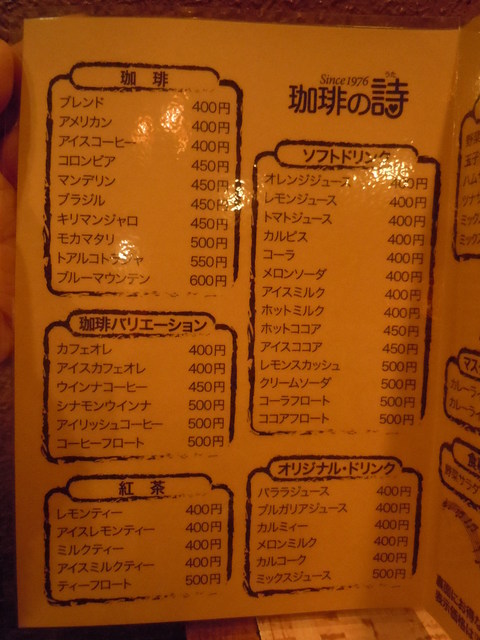 珈琲
ブレンド 400円
アメリカン 400円
アイスコーヒー 400円
コロンビア 450円
マンデリン 450円
ブラジル 450円
キリマンジャロ 450円
モカマタリ 500円
トアルコトラジャ 550円
ブルーマウンテン 600円
珈琲バリエーション
カフェオレ 400円
アイスカフェオレ 400円
ウインナコーヒー 450円
シナモンウインナ 500円
アイリッシュコーヒー 500円
コーヒーフロート 500円
紅茶
レモンティー 400円
アイスレモンティー 400円
ミルクティー 400円
アイスミルクティー 400円
ティーフロート 500円
Since1976
うた
珈琲の詩
ソフトドリンク
オレンジジュース 400円
レモンジュース 400円
トマトジュース 400円
カルピス 400円
コーラ 400円
メロンソーダ 400円
アイスミルク 400円
ホットミルク 400円
ホットココア 450円
アイスココア 450円
レモンスカッシュ 500円
クリームソーダ 500円
コーラフロート 500円
ココアフロート 500円
オリジナル・ドリンク
パララジュース 400円
ブルガリアジュース 400円
カルミィー 400円
メロンミルク 400円
カルコーク 400円
ミックスジュース 500円
野菜
玉子
ハム
ツナサ
ミックス
ミックス
マス
カレーラ
カレーラ
食事
野菜サラダ